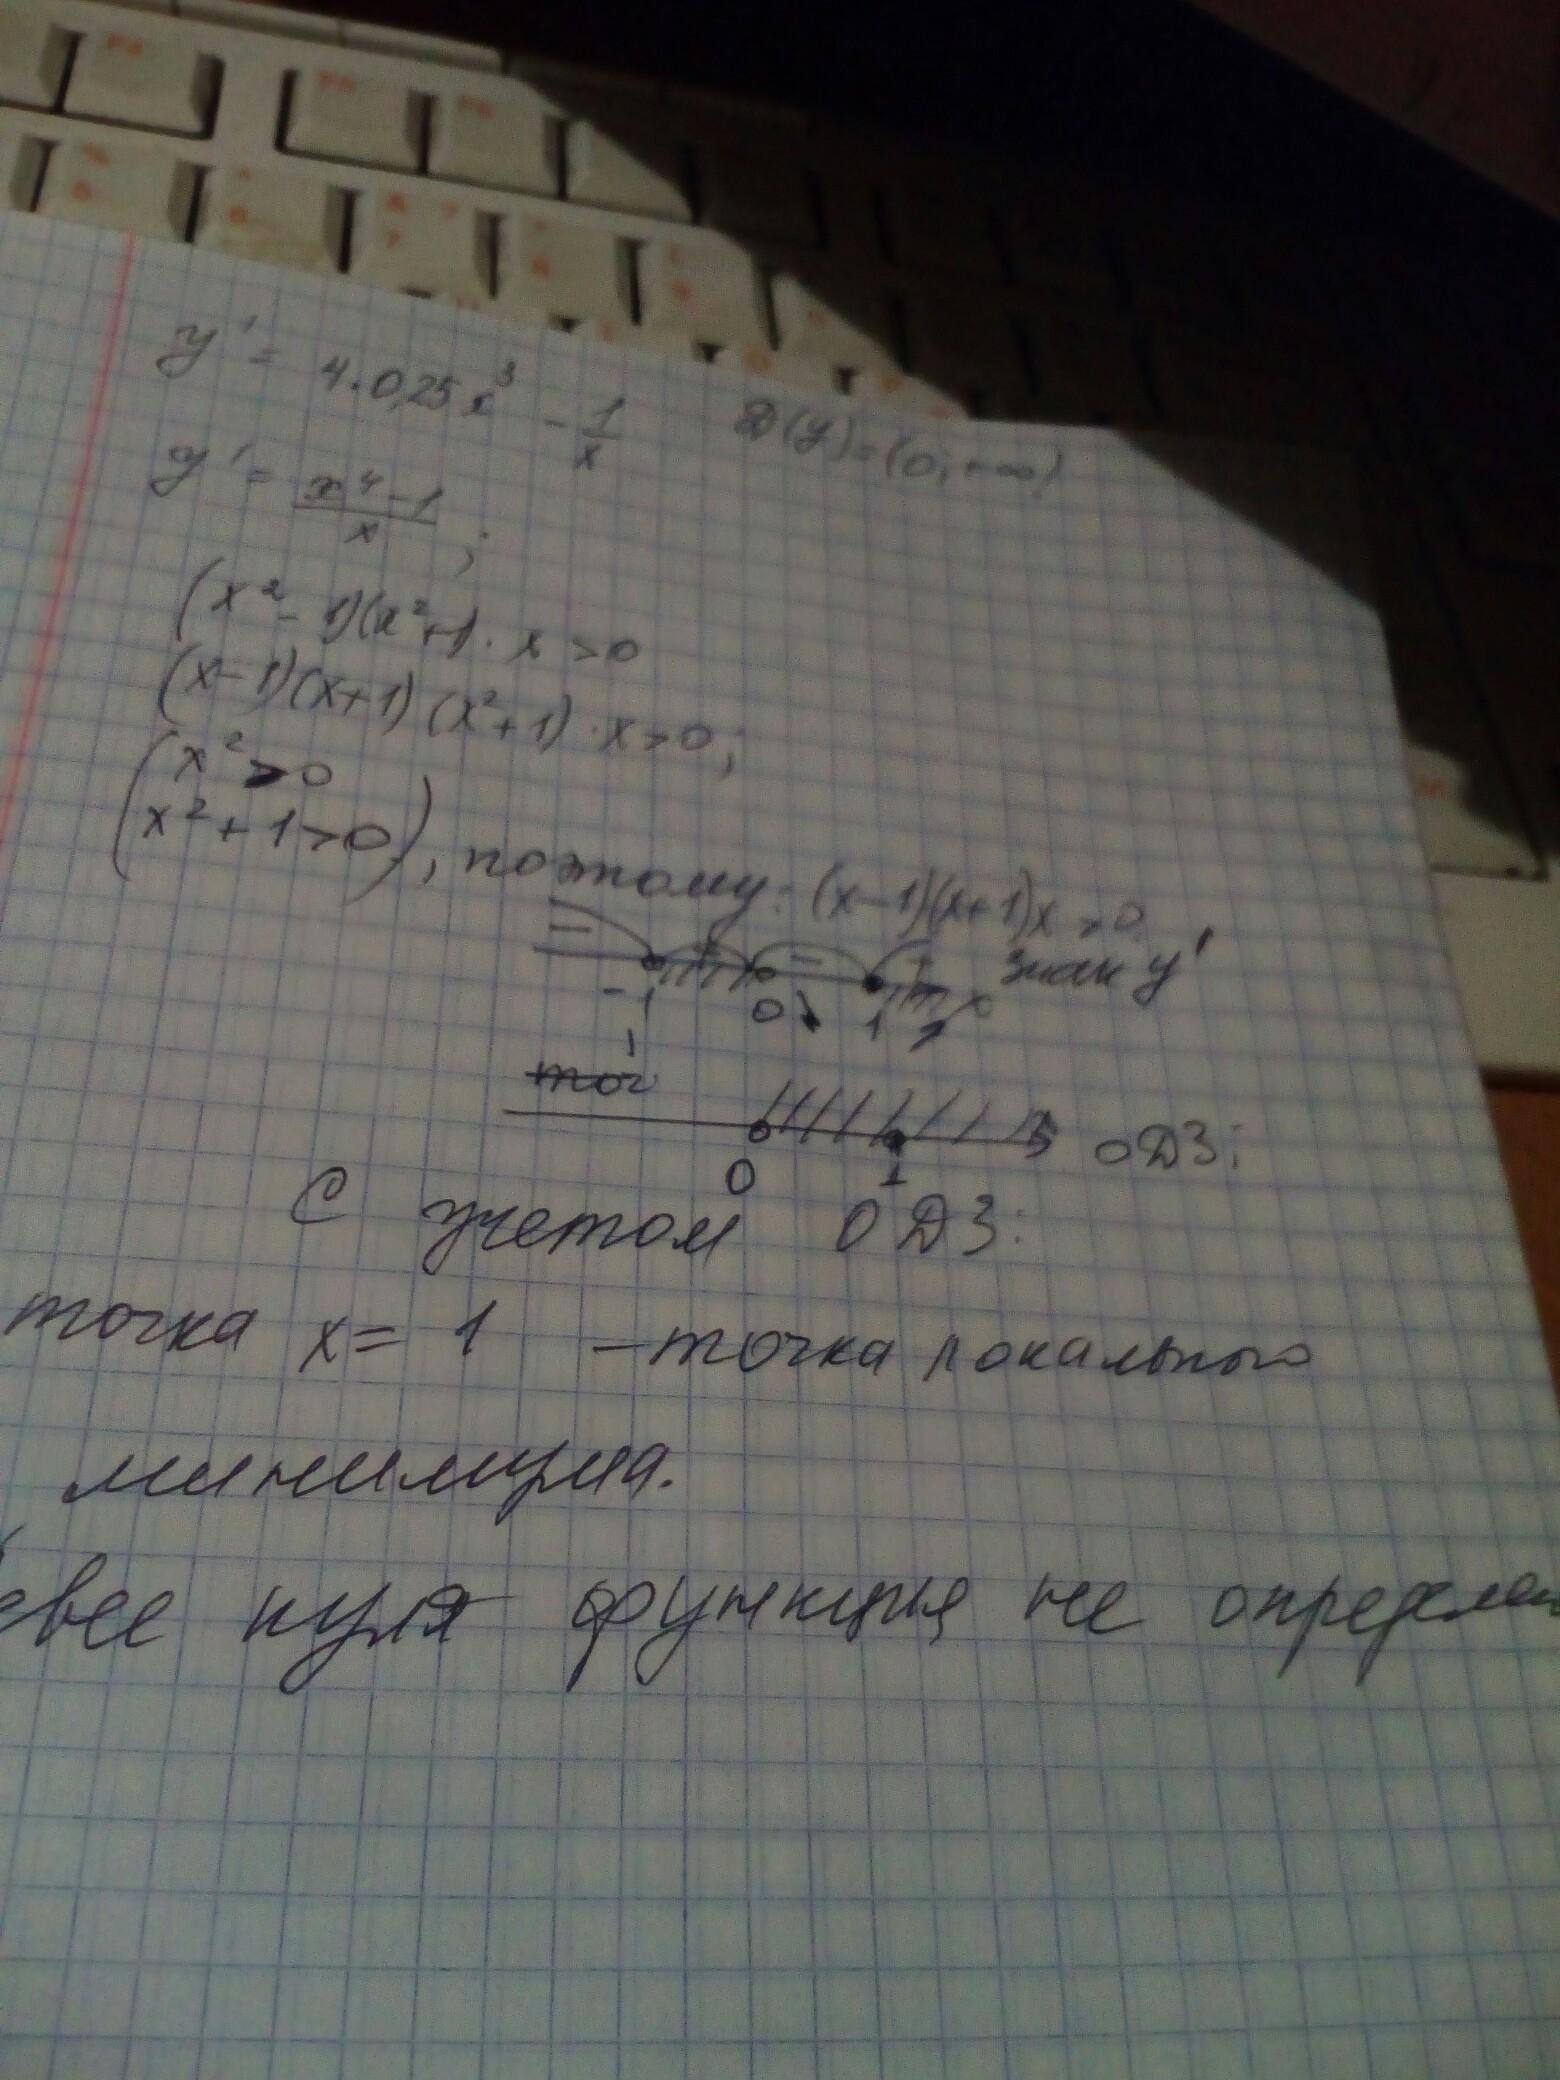 y' = 4·0,25x³ - 1/x   D(y)=(0;+∞)
y' = (x⁴-1)/x ;
(x²-1)(x²+1)·x >0
(x-1)(x+1)(x²+1)·x>0;
x²>0
(x²+1>0), поэтому: (x-1)(x+1)x >0
- + - + знак y'
-1 0 1 x
0 1 ОДЗ;
С учетом ОДЗ:
точка x= 1 - точка локального
минимума.
нуля функция не